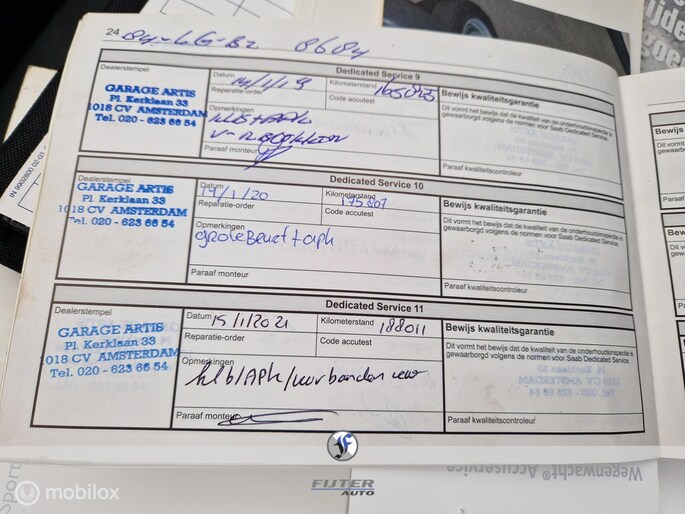 24
Dedicated Service 9
Dealerstempel
GARAGE ARTIS
Pl. Kerklaan 33
1018 CV AMSTERDAM
Tel. 020 - 623 66 54
Datum
Kilometerstand
165045
Reparatie-order
Code accutest
Opmerkingen
Paraaf monteur
Bewijs kwaliteitsgarantie
Dit vormt het bewijs dat de kwaliteit van de onderhoudsinspectie is
gewaarborgd volgens de normen voor Saab Dedicated Service.
Paraaf kwaliteitscontroleur
Dedicated Service 10
Dealerstempel
GARAGE ARTIS
Pl. Kerklaan 33
1018 CV AMSTERDAM
Tel. 020 - 623 66 54
Datum
14/1/20
Kilometerstand
175807
Reparatie-order
Code accutest
Opmerkingen
grote Beurt + apk
Paraaf monteur
Bewijs kwaliteitsgarantie
Dit vormt het bewijs dat de kwaliteit van de onderhoudsinspectie is
gewaarborgd volgens de normen voor Saab Dedicated Service.
Paraaf kwaliteitscontroleur
Dedicated Service 11
Dealerstempel
GARAGE ARTIS
Pl. Kerklaan 33
1018 CV AMSTERDAM
Tel. 020 - 623 66 54
Datum
15/1/2021
Kilometerstand
188011
Reparatie-order
Code accutest
Opmerkingen
Paraaf monteur
Bewijs kwaliteitsgarantie
Dit vormt het bewijs dat de kwaliteit van de onderhoudsinspectie is
gewaarborgd volgens de normen voor Saab Dedicated Service.
Paraaf kwaliteitscontroleur
Bewijs
Dit vormt
gewaarb
Paraaf k
Bewijs
Dit vorm
gewaar
Paraaf
Wegenwacht® Accuservice
Sport
FIJTER
AUTO
mobilox